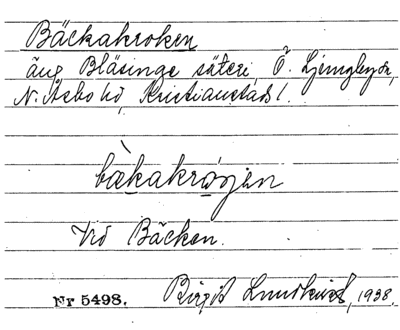 Bäckakroken
äng Bläsinge säteri, Ö. Ljungbyn,
N. Åsbo hd, Kristianstads l.
bækakrogen
Vid Bäcken.
Nr 5498. Birgit Lundkvist, 1938.